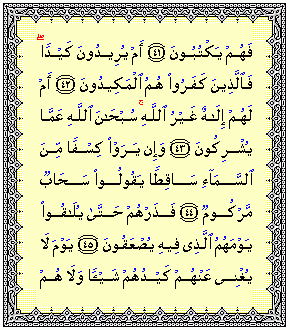 فَهُمْ يَكْتُبُونَ ﴿٤١﴾ أَمْ يُرِيدُونَ كَيْدًا ۖ
فَٱلَّذِينَ كَفَرُوا۟ هُمُ ٱلْمَكِيدُونَ ﴿٤٢﴾ أَمْ
لَهُمْ إِلَٰهٌ غَيْرُ ٱللَّهِ ۚ سُبْحَٰنَ ٱللَّهِ عَمَّا
يُشْرِكُونَ ﴿٤٣﴾ وَإِن يَرَوْا۟ كِسْفًا مِّنَ
ٱلسَّمَآءِ سَاقِطًا يَقُولُوا۟ سَحَابٌ
مَّرْكُومٌ ﴿٤٤﴾ فَذَرْهُمْ حَتَّىٰ يُلَٰقُوا۟
يَوْمَهُمُ ٱلَّذِى فِيهِ يُصْعَقُونَ ﴿٤٥﴾ يَوْمَ لَا
يُغْنِى عَنْهُمْ كَيْدُهُمْ شَيْـًٔا وَلَا هُمْ